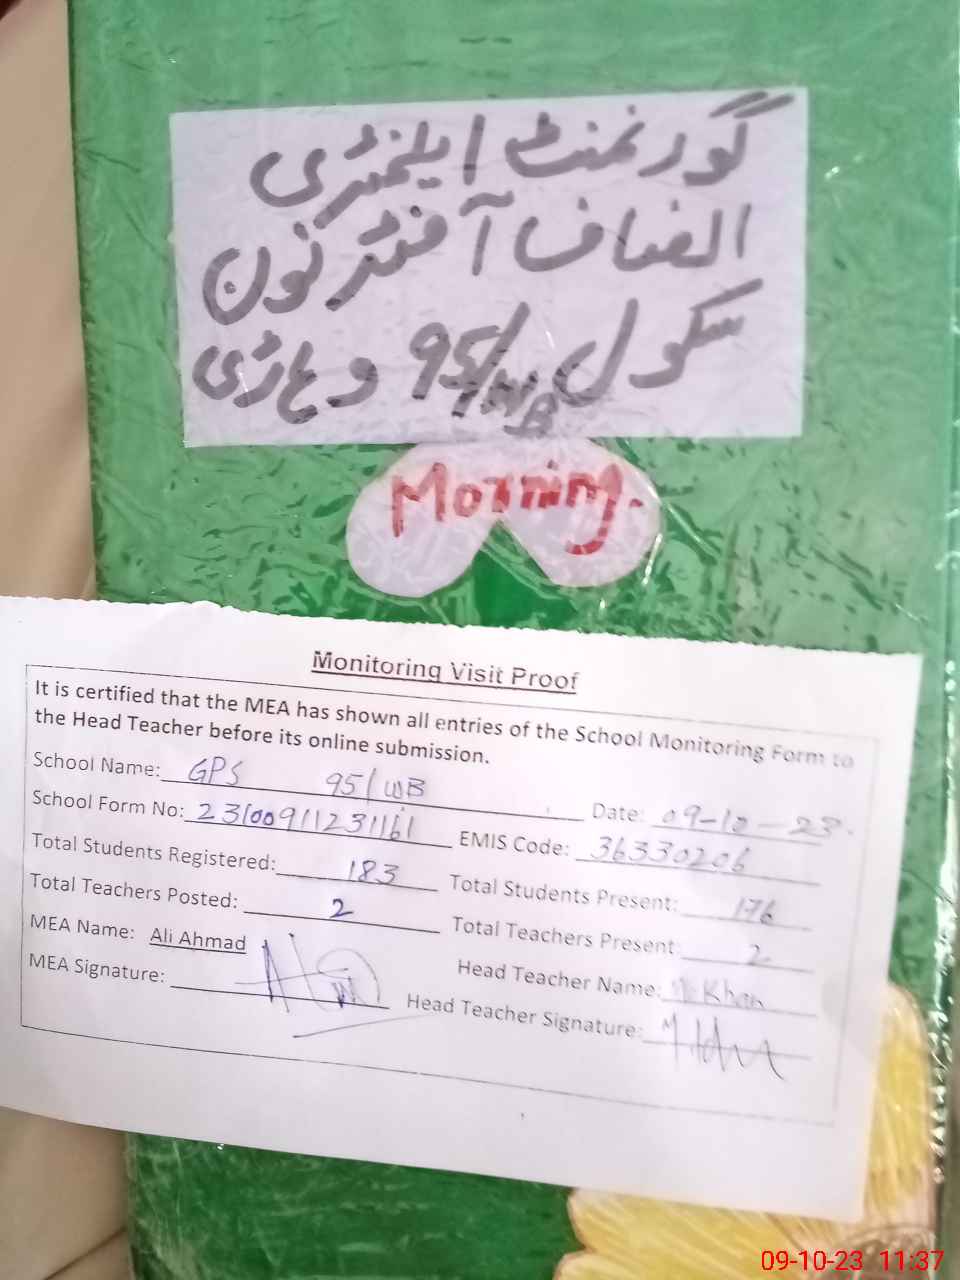 گورنمنٹ ایلیمنٹری
انصاف آفٹر نون
سکول 95/WB وہاڑی
Morning.
Monitoring Visit Proof
It is certified that the MEA has shown all entries of the School Monitoring Form to
the Head Teacher before its online submission.
School Name: GPS 95/WB Date: 09-10-23.
School Form No: 23100911231161 EMIS Code: 36330206
Total Students Registered: 183 Total Students Present: 176
Total Teachers Posted: 2 Total Teachers Present: 2
MEA Name: Ali Ahmad Head Teacher Name: Khan
MEA Signature: Head Teacher Signature:
09-10-23 11:37